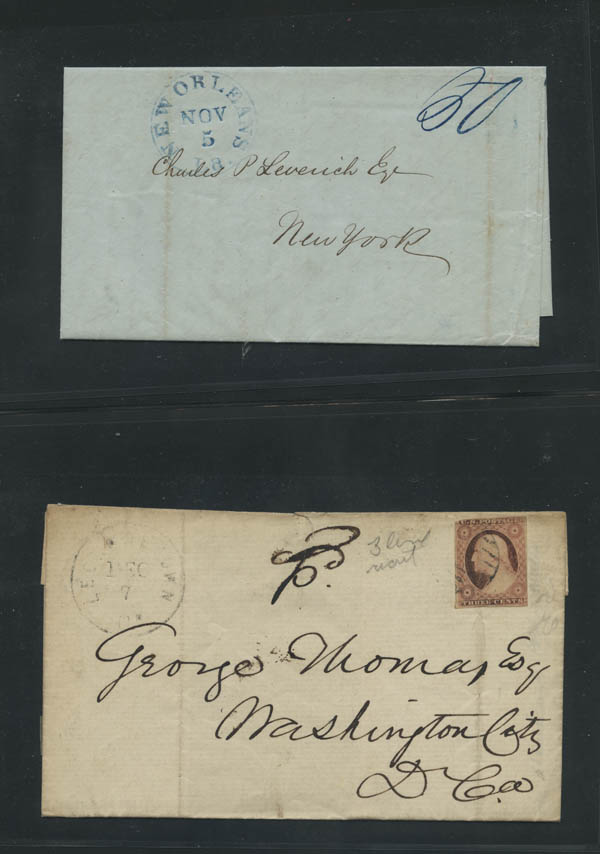 NEW ORLEANS
NOV
5
50
Charles P Leverich Esq
New York
DEC
7
Pd.
U.S. POSTAGE
THREE CENTS
George Thomas, Esq
Washington City
D. Ca